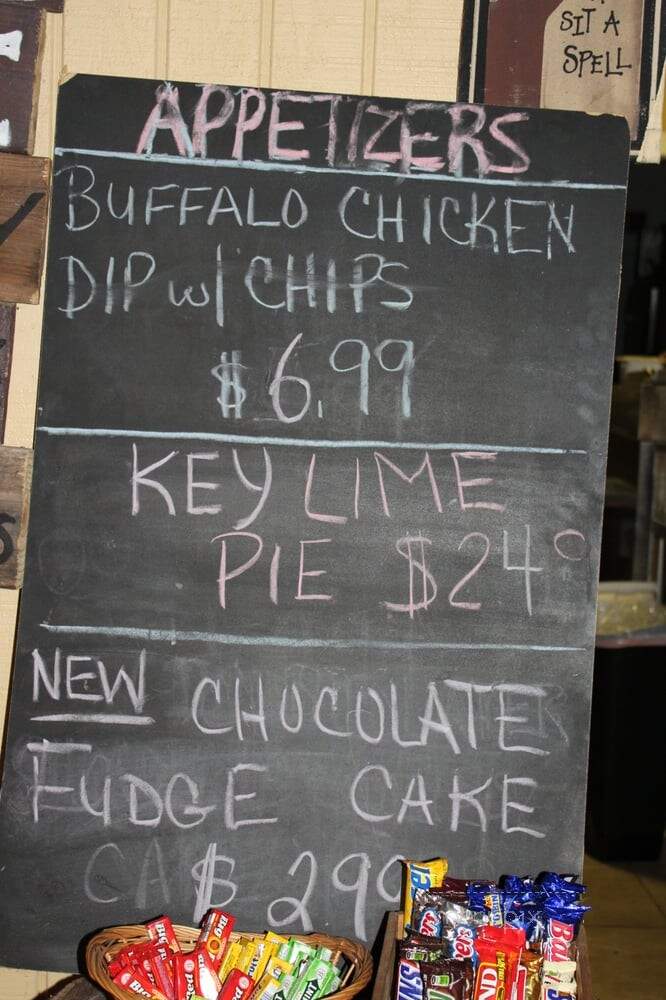 SIT A
SPELL
APPETIZERS
BUFFALO CHICKEN
DIP w/ CHIPS
$6.99
KEY LIME
PIE $2 40
NEW CHOCOLATE
FUDGE CAKE
$ 299
Big Red